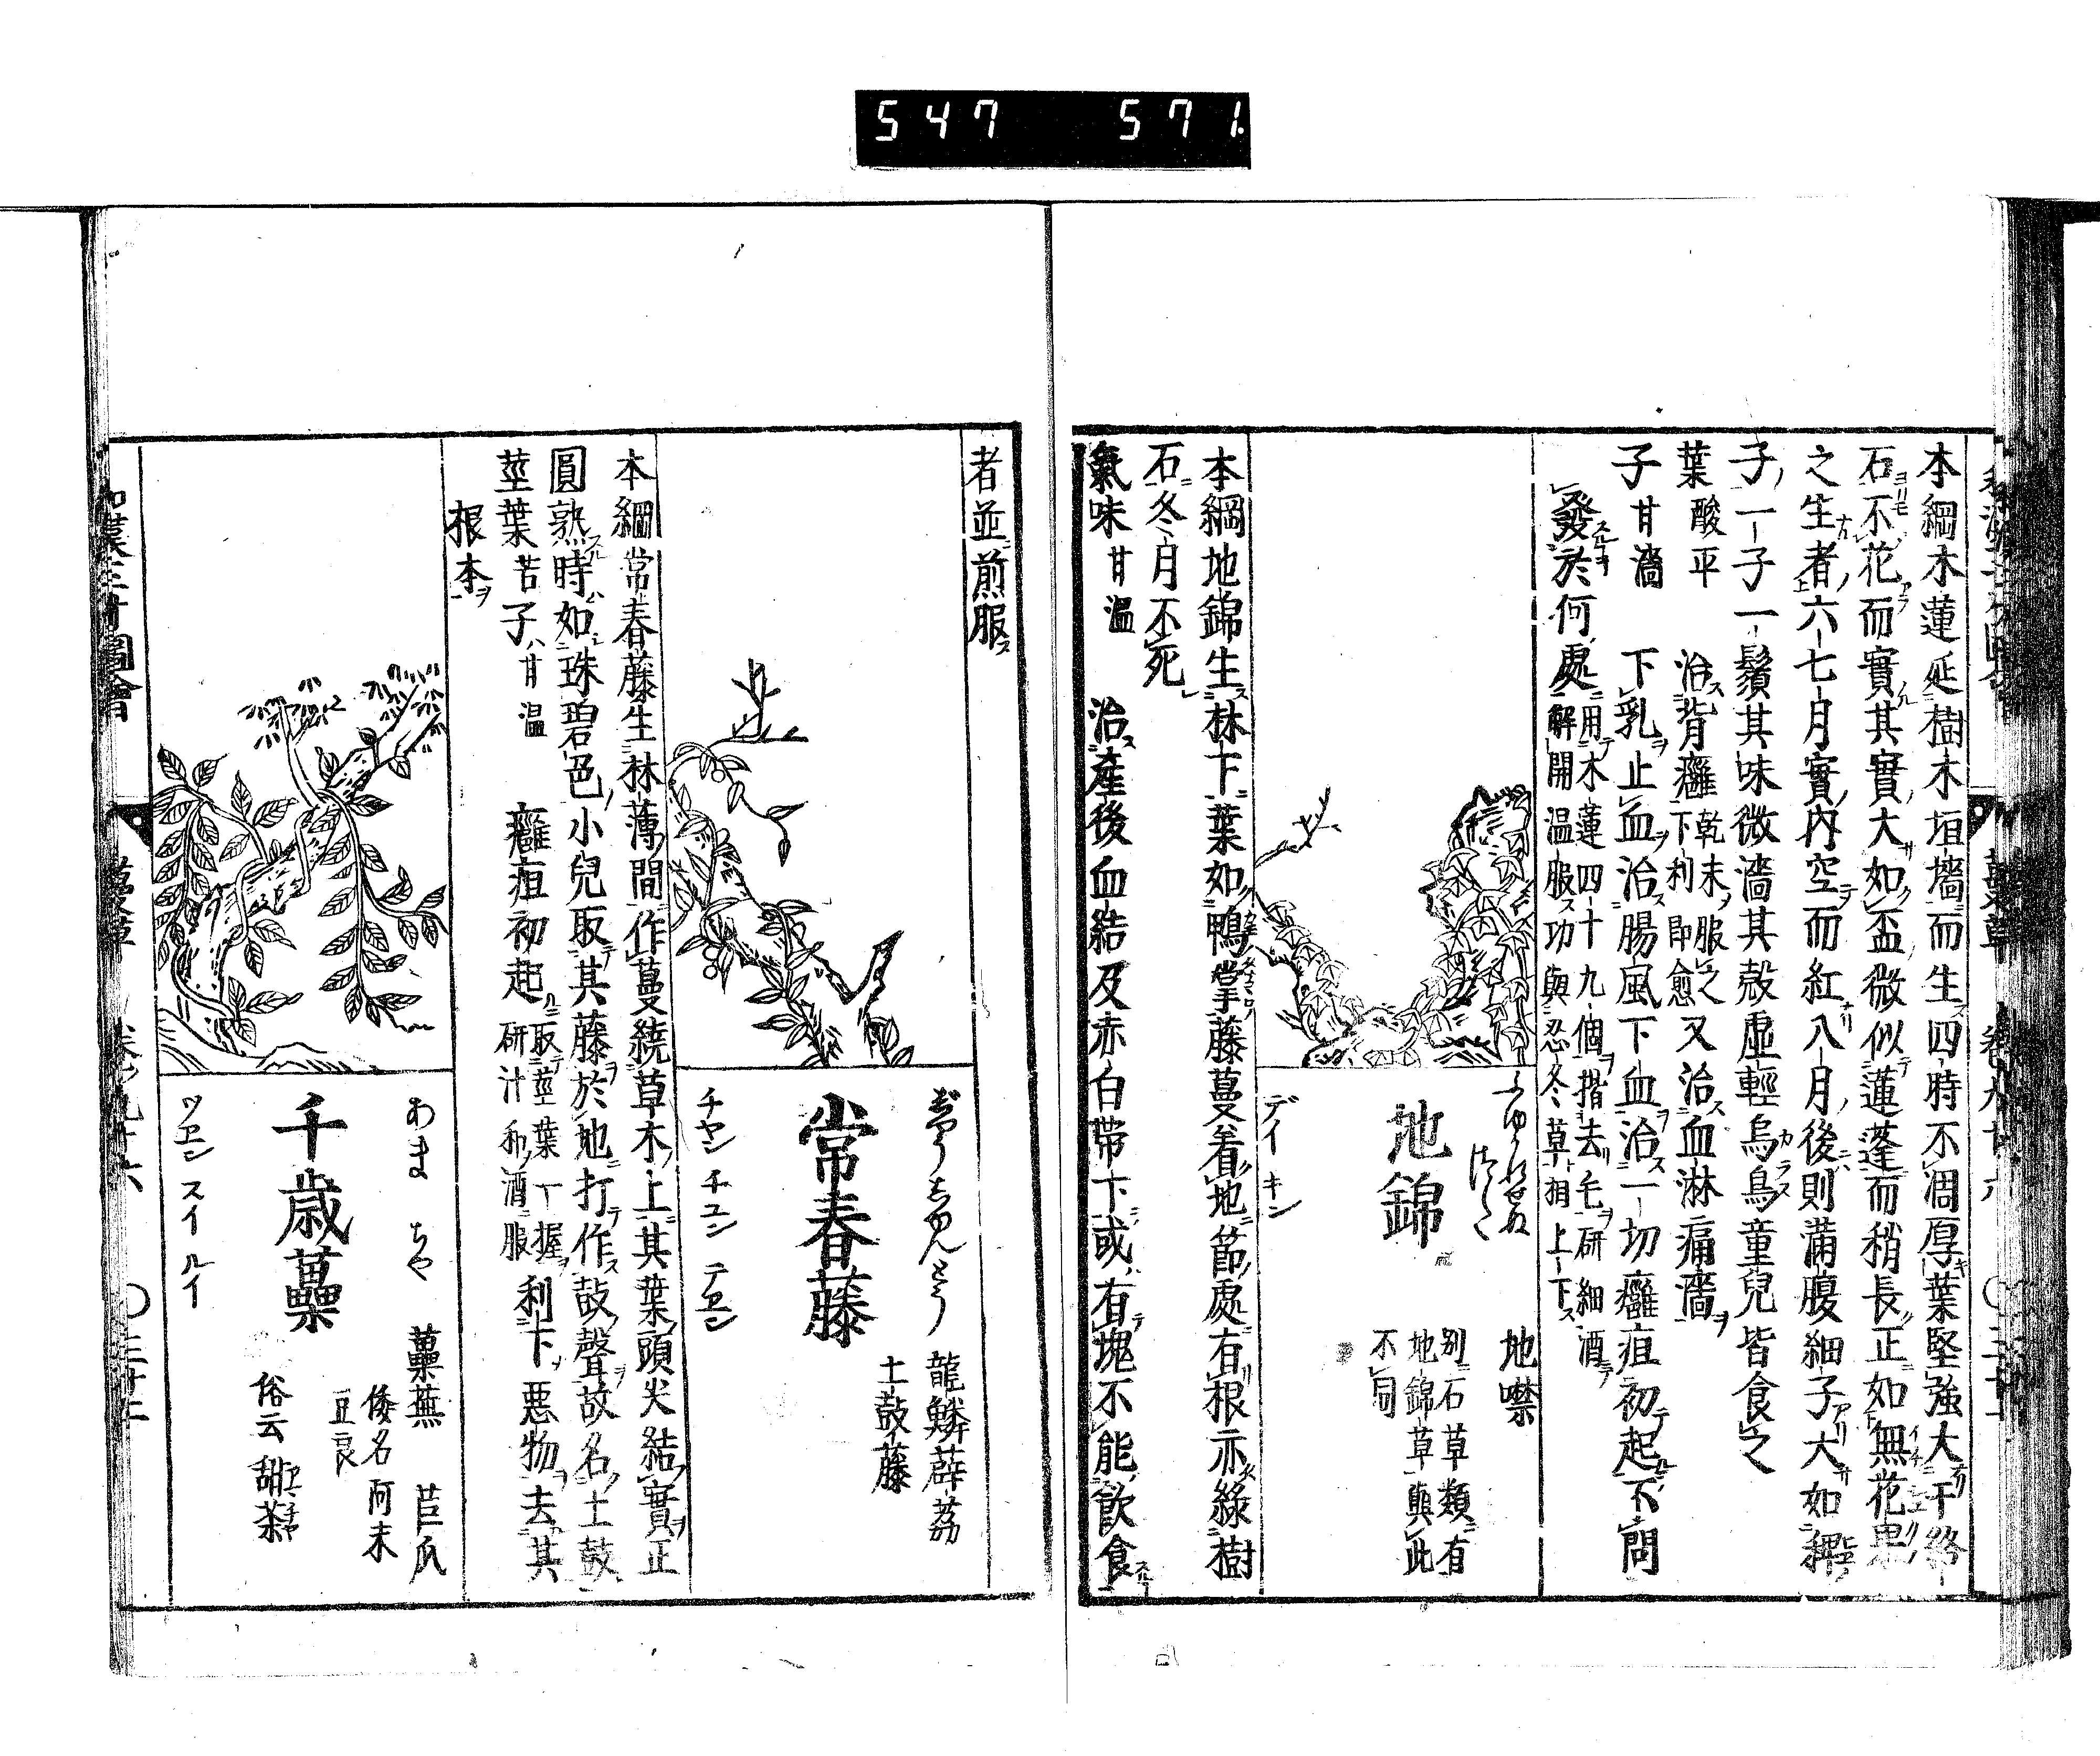 547 571
本綱木蓮延樹木垣墻而生四時不凋厚葉堅強大于絡
石不花而實其實大如盃微似蓮蓬而稍長正如無花果
之生者六七月實內空而紅八月後則滿腹細子大如稗
子一子一鬚其味微濇其殼虛輕烏鳥童兒皆食之
葉酸平 治背癰乾末服之下利即愈又治血淋痛濇
子甘濇 下乳止血治腸風下血治一切癰疽初起不問
發於何處用木蓮四十九個揩去毛研細酒
解開溫服功與忍冬草相上下
地錦
地噤
別石草類有
地錦草與此
不同
デイ キン
本綱地錦生林下葉如鴨掌藤蔓着地節處有根亦緣樹
石冬月不死
氣味甘溫 治產後血結及赤白帶下或有塊不能飲食
者並煎服
常春藤
龍鱗薜荔
土鼓藤
チヤン チユン テヱン
本綱常春藤生林薄間作蔓繞草木上其葉頭尖結實正
圓熟時如珠碧色小兒取其藤於地打作鼓聲故名土鼓
莖葉苦子甘溫 癰疽初起取莖葉一握研汁和酒服利下惡物去其
根本
千歲蘽
あまちや
蘽蕪 苣瓜
倭名阿末
豆良
俗云甜茶
ツヱン スイ ルイ